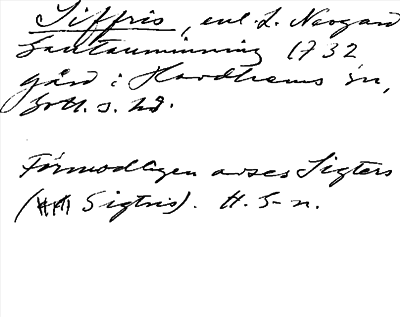 Siffris, enl. L. Neogard
Gautauminning 1732
gård i Hardhems sn,
Gotl. s. hd.
Förmodligen avses Sigters
(Sigtris). H. G-n.